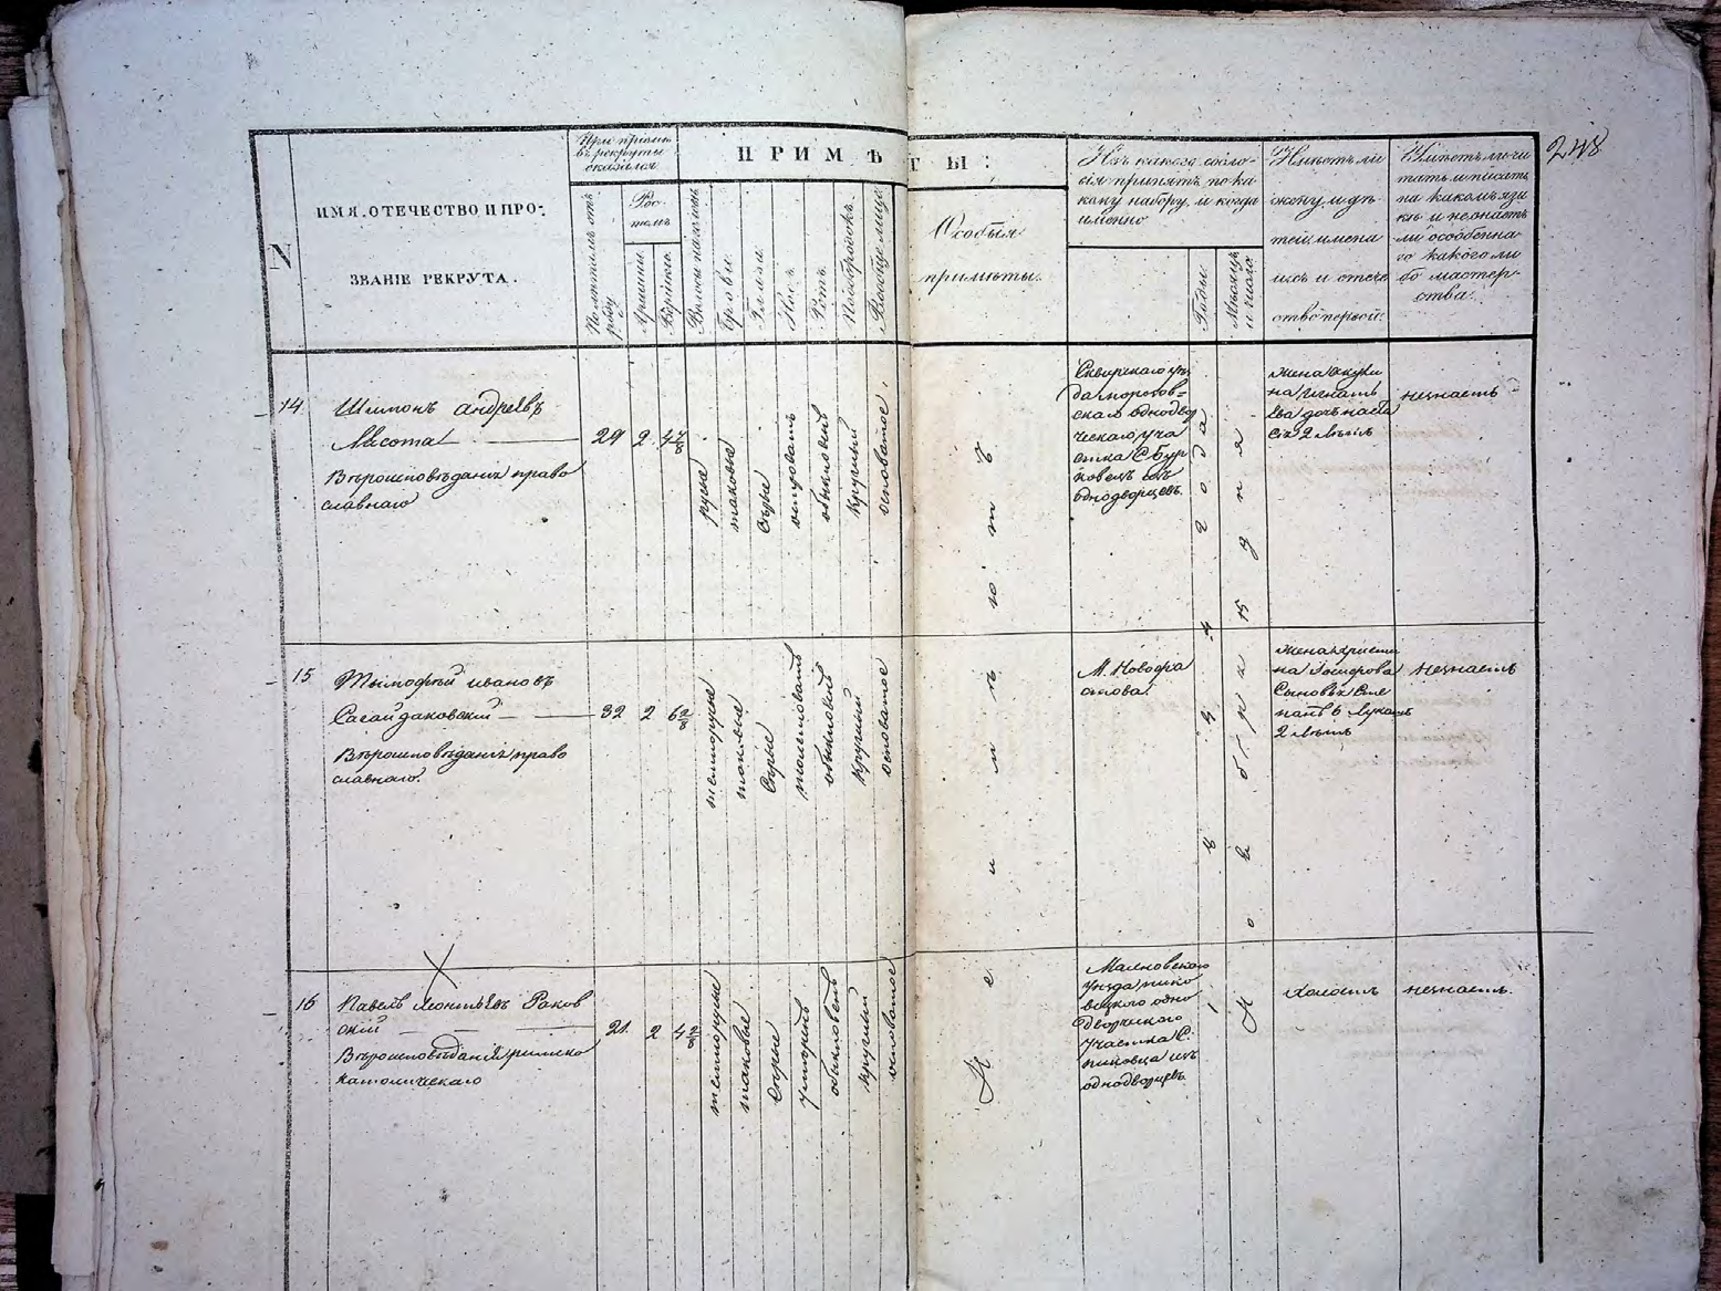 248
N
ИМЯ, ОТЕЧЕСТВО И ПРО-
ЗВАНІЕ РЕКРУТА.
При пріемѣ
въ рекруты
оказался
Рос-
томъ
Аршины
Вершков.
ПРИМѢТЫ:
Волосы на головѣ
Брови
Глаза
Носъ
Ротъ
Подбородокъ
Вообще лице
Особыя
примѣты.
Изъ какого сосло-
вія принятъ по ка-
кому набору, и когда
именно
Годы
Мѣсяцъ
и число
Имѣетъ ли
жену и дѣ-
тей имена
ихъ и отече
ство первой.
Умѣетъ ли чи
тать и писать
на какомъ язы
кѣ и не знаетъ
ли особенна-
го какого ли
бо мастер-
ства.
14
Шимонъ Андреевъ
Масота
Вѣроисповѣданія право
славнаго
29
2
4 4/8
русые
таковые
сѣрые
обыкновенъ
круглый
Сквирскаго уѣз
скаго однодвор
ческаго уча
стка С. Бур
ковецъ изъ
однодворцевъ.
Жена Акули
на Игнать
ева дочь Наста
сія 2 лѣтъ
незнаетъ
15
Тымофѣй Ивановъ
Сагайдаковскій
Вѣроисповѣданія право
славнаго.
32
2
6 2/8
темнорусые
таковые
Сѣрые
обыкновенъ
круглый
М. Новофа
стова.
Жена Христи
на Іосифова
Сыновья Сте
панъ 6 Лукашъ
2 лѣтъ
незнаетъ
16
Павелъ Леонтьевъ Раков
скій
Вѣроисповѣданія римско
католическаго
21.
2
4 2/8
темнорусые
таковые
Сѣрые
обыкновенъ
круглый
уѣзда пико
вецкого одно
дворческого
Участка С.
пиковца изъ
однодворцевъ
холостъ
незнаетъ.
Не имѣетъ
Ноября 15 дня
года